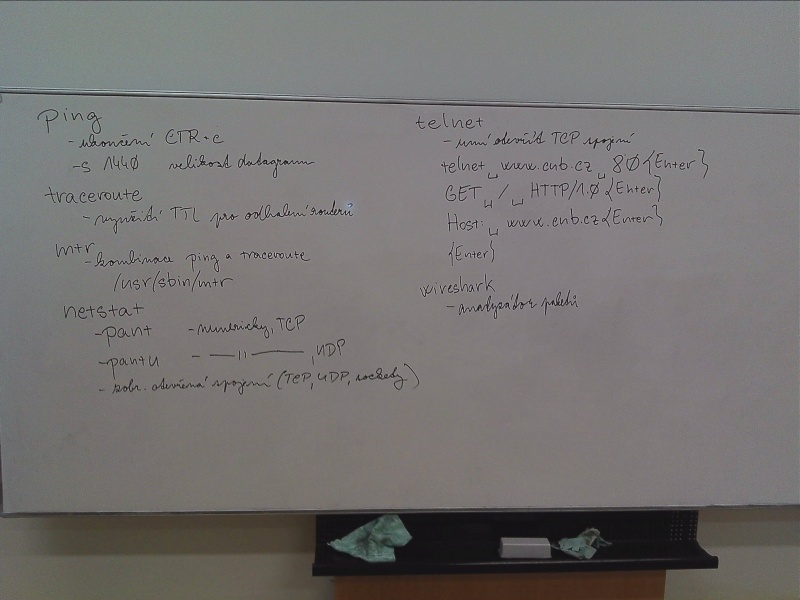 ping
- ukončení CTR+c
-s 1440 velikost datagramu
traceroute
- využití TTL pro odhalení routerů
mtr
- kombinace ping a traceroute
/usr/sbin/mtr
netstat
-pant - numericky, TCP
-pantu - —— 11 ——— , UDP
- zobr. otevřená spojení (TCP, UDP, sockety)
telnet
- umí otevřít TCP spojení
telnet ␣ www.cnb.cz ␣ 80 {Enter}
GET ␣ / ␣ HTTP/1.0 {Enter}
Host: ␣ www.cnb.cz {Enter}
{Enter}
wireshark
- analyzátor paketů